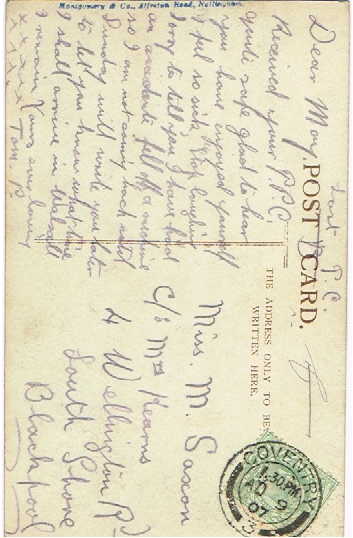 Montgomery & Co., Alfreton Road, Nottingham.
POST CARD.
THE ADDRESS ONLY TO BE
WRITTEN HERE.
Last P.C.
Dear May,
Received your P.P.C
quite safe glad to hear
you have enjoyed yourself
I feel so sick stop laughing
Sorry to tell you I have had
an accident fell off a machine
so I am not coming back until
Sunday will write you later
to tell you know what time
I shall arrive in Walsall
I remain Yours ever loving
x x x x x Tom. P.
Miss. M. Saxon
C/o Mrs Kearns
4 Wellington Rd
South Shore
Blackpool
COVENTRY
1.30PM
9
07
3